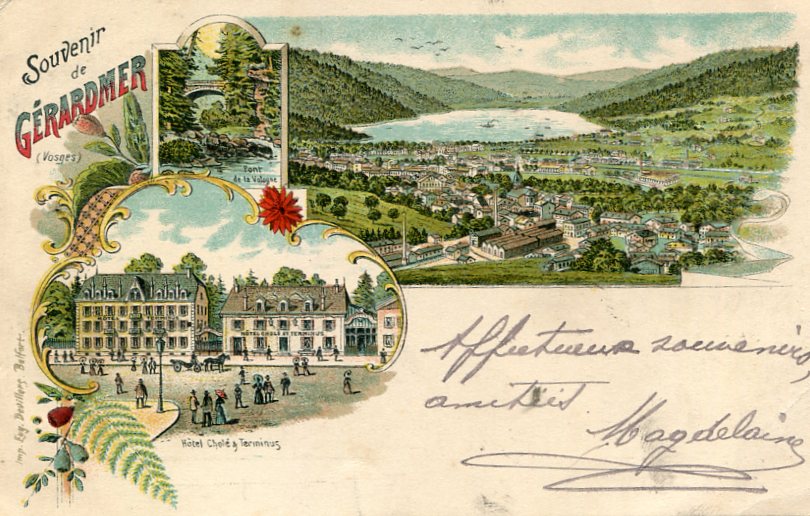 Souvenir
de
GÉRARDMER
(Vosges)
Pont
de la Vologne
HÔTEL CHOLÉ ET TERMINUS
Hôtel Cholé & Terminus
Imp. Eug. Devillers, Belfort.
Affectueux souvenirs,
amitiés
Magdelaine